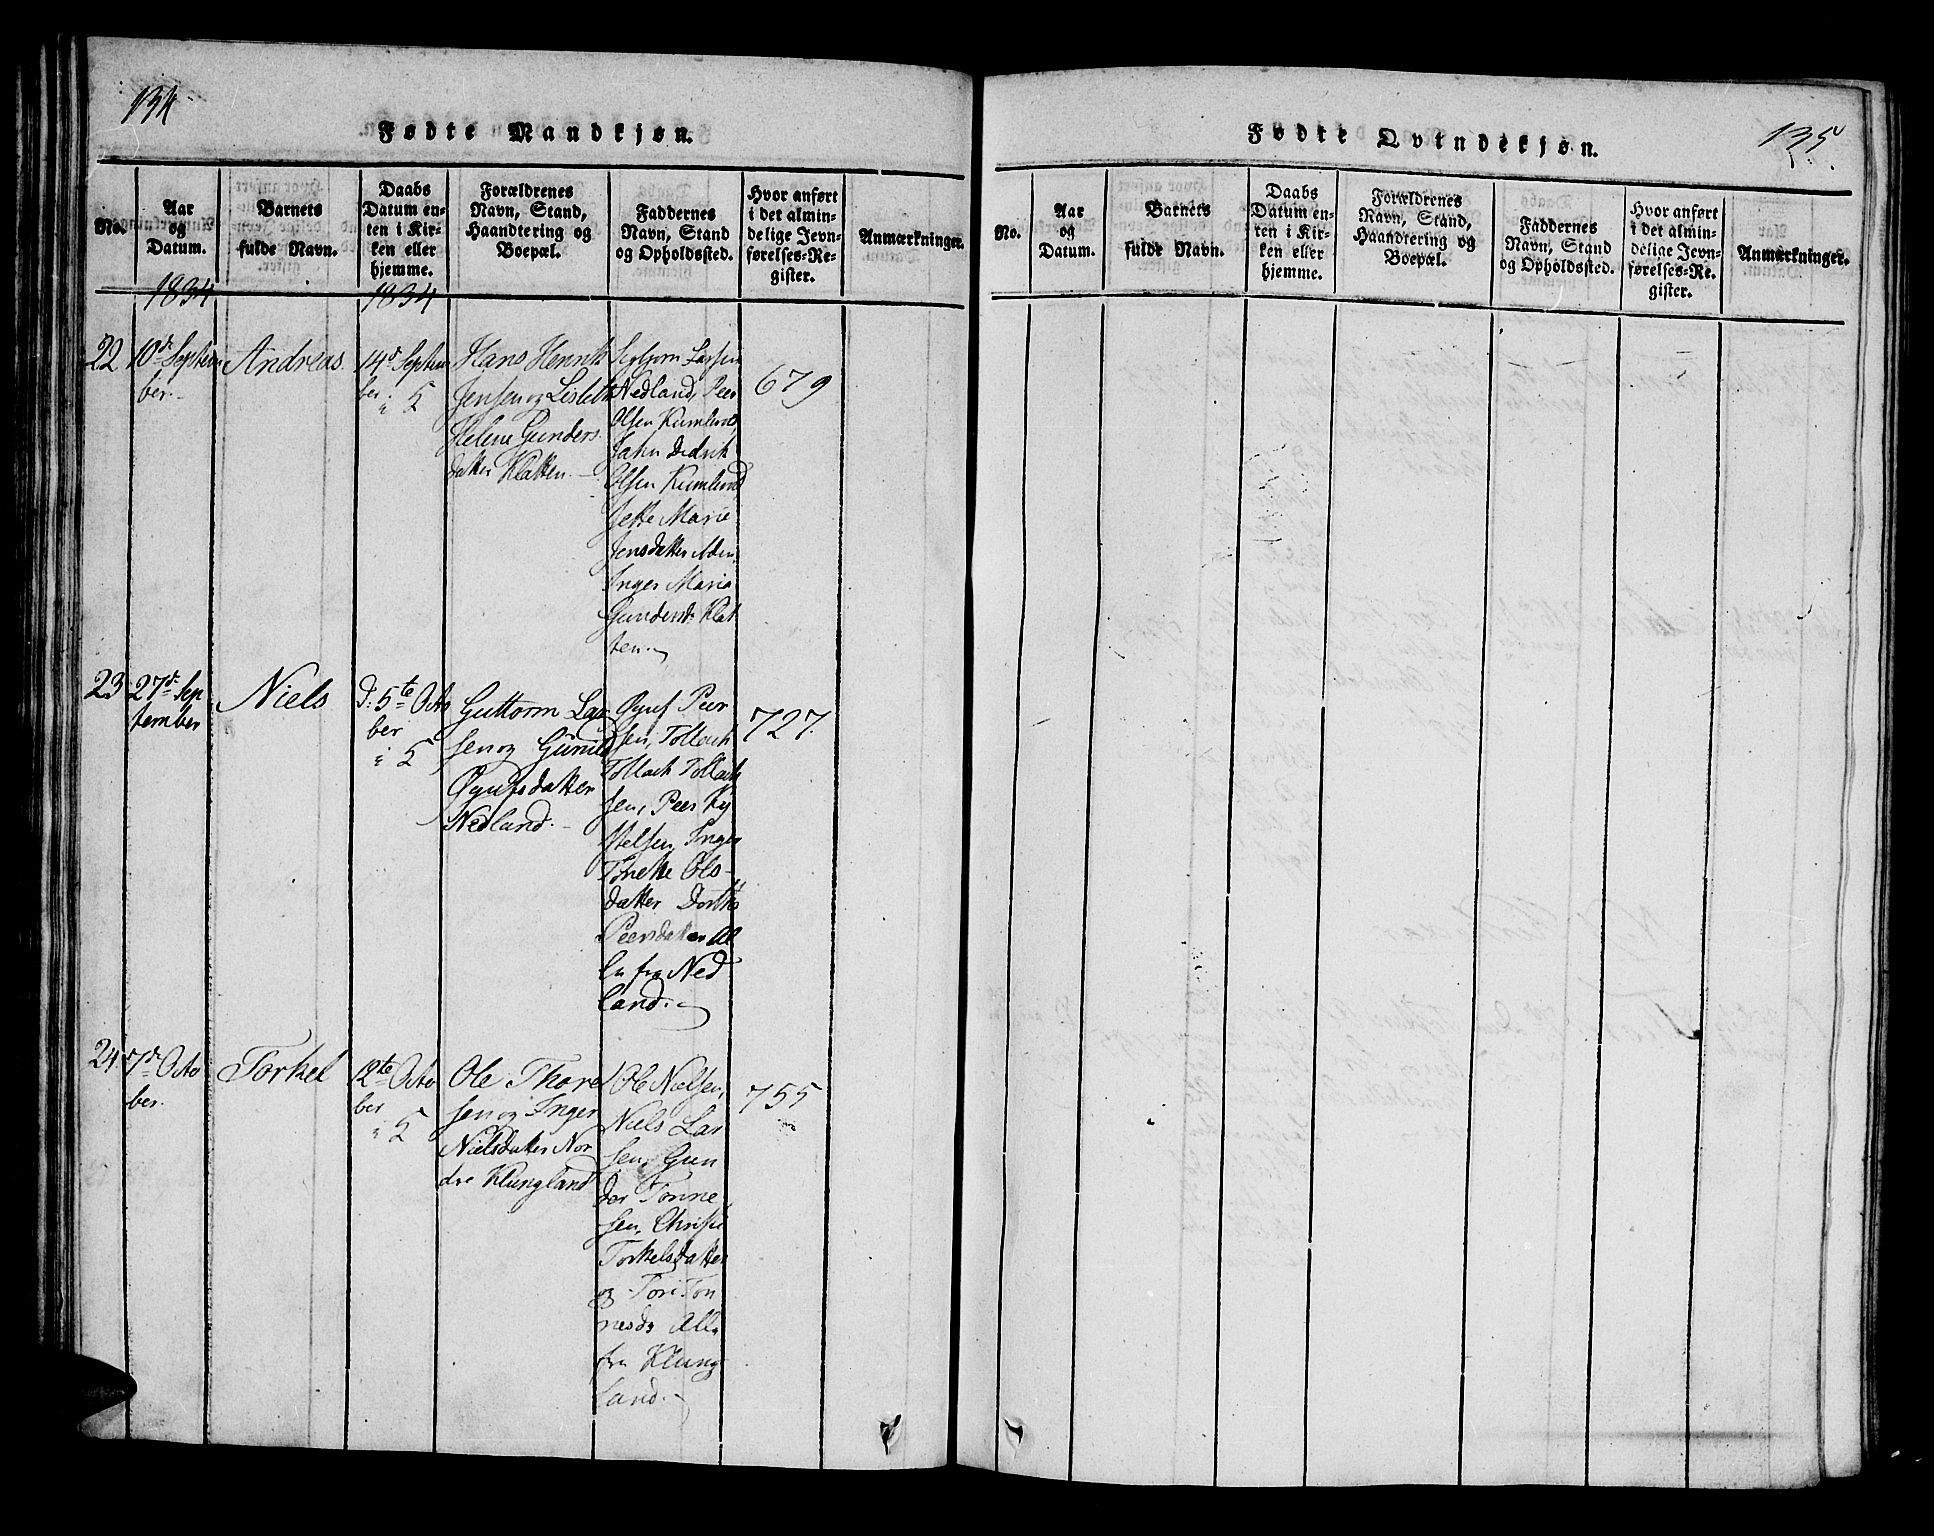 134
Fødte Mandkjøn.
No.
Aar
og
Datum.
Barnets
fulde Navn.
Daabs
Datum en-
ten i Kir-
ken eller
hjemme.
Forældrenes
Navn, Stand,
Haandtering og
Boepæl.
Faddernes
Navn, Stand
og Opholdssted.
Hvor anført
i det almin-
delige Jevn-
førelses-Re-
gister.
Anmærkninger.
1834
1834
22
10d Septem
ber.
Andreas.
14d Septem
ber
5
Hans Henrik
Jensen og Lisbeth
Helene Gunders
datter Klatten.
Larsen
Nedland, Peer
Olsen
Jahn Didrik
Olsen
Jette Marie
Jensdatter
Inger Maria
Gundersd. Klat
ten.
679
23
27d Sep
tember
Niels
D. 5te Octo
ber
5
Guttorm La
sen og Gunild
Øgufsdatter
Nedland.
Øguf Peer
sen, Tollach
Tollach Tollach
sen, Peer Ky
stelsen, Inger
Tonette Ols-
datter Dorthe
Peersdatter Al
le fra Ned
land.
727.
24.
7d Octo
ber.
Torkel
12te Octo
ber
5
Ole Thore
sen og Inger
Nielsdatter Nor
dre Klungland
Ole Nielsen,
Niels Lar
sen, Gun
der Tonne
sen, Christi
Torkelsdatter
og Tori Ton
nesd. Alle
fra Klung
land.
755
135
Fødte Qvindekjøn.
No.
Aar
og
Datum.
Barnets
fulde Navn.
Daabs
Datum en-
ten i Kir-
ken eller
hjemme.
Forældrenes
Navn, Stand,
Haandtering og
Boepæl.
Faddernes
Navn, Stand
og Opholdssted.
Hvor anført
i det almin-
delige Jevn-
førelses-Re-
gister.
Anmærkninger.